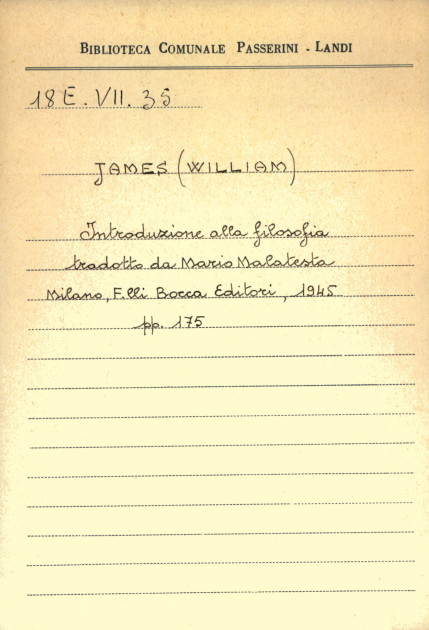 BIBLIOTECA COMUNALE PASSERINI - LANDI
18 E. VII. 35
JAMES (WILLIAM)
Introduzione alla filosofia
tradotto da Mario Malatesta
Milano, F.lli Bocca Editori, 1945
pp. 175